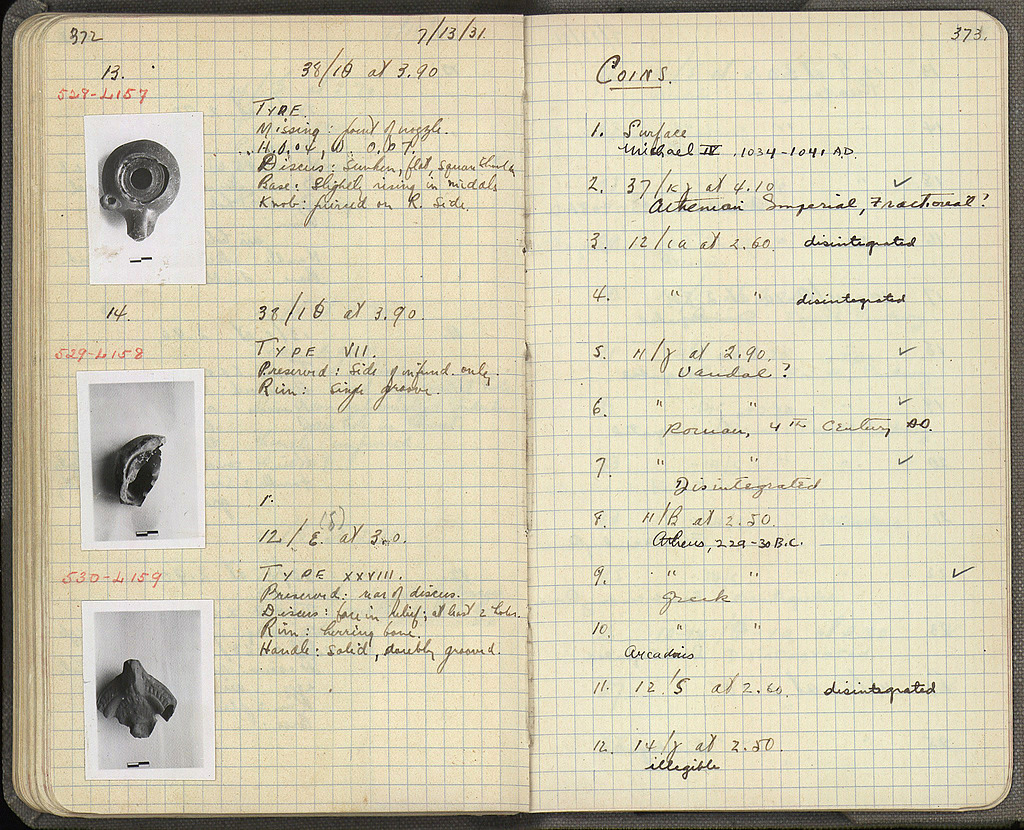 372
7/13/31.
13.
38/ΙΘ at 3.90
528-L157
TYPE
Missing: point of nozzle.
H. 0.04, D. 0.07.
Discus: Sunken, flat, square
Base: Slightly rising in middle
Knob: pierced on R. Side.
14.
38/ΙΘ at 3.90.
529-L158
TYPE VII.
Preserved: Side of infund. only.
Rim: Single groove.
1.
(8)
12/E. at 3.0.
530-L159
TYPE XXVIII.
Preserved: rear of discus.
Discus: face in relief; at least 2 holes.
Rim: herring bone.
Handle: Solid, doubly grooved.
373.
COINS.
1. Surface
Michael IV 1034-1041 A.D.
2. 37/ at 4.10 ✓
Athenian Imperial, Fractional?
3. 12/ at 2.60. disintegrated
4. " " disintegrated
5. at 2.90. ✓
Vandal?
6. " " ✓
Roman, 4TH Century AD.
7. " " ✓
Disintegrated
8. at 2.50.
Athens, 229-30 B.C.
9. " " ✓
Greek
10. " "
Arcadius
11. 12/S at 2.60. disintegrated
12. 14/γ at 2.50.
illegible